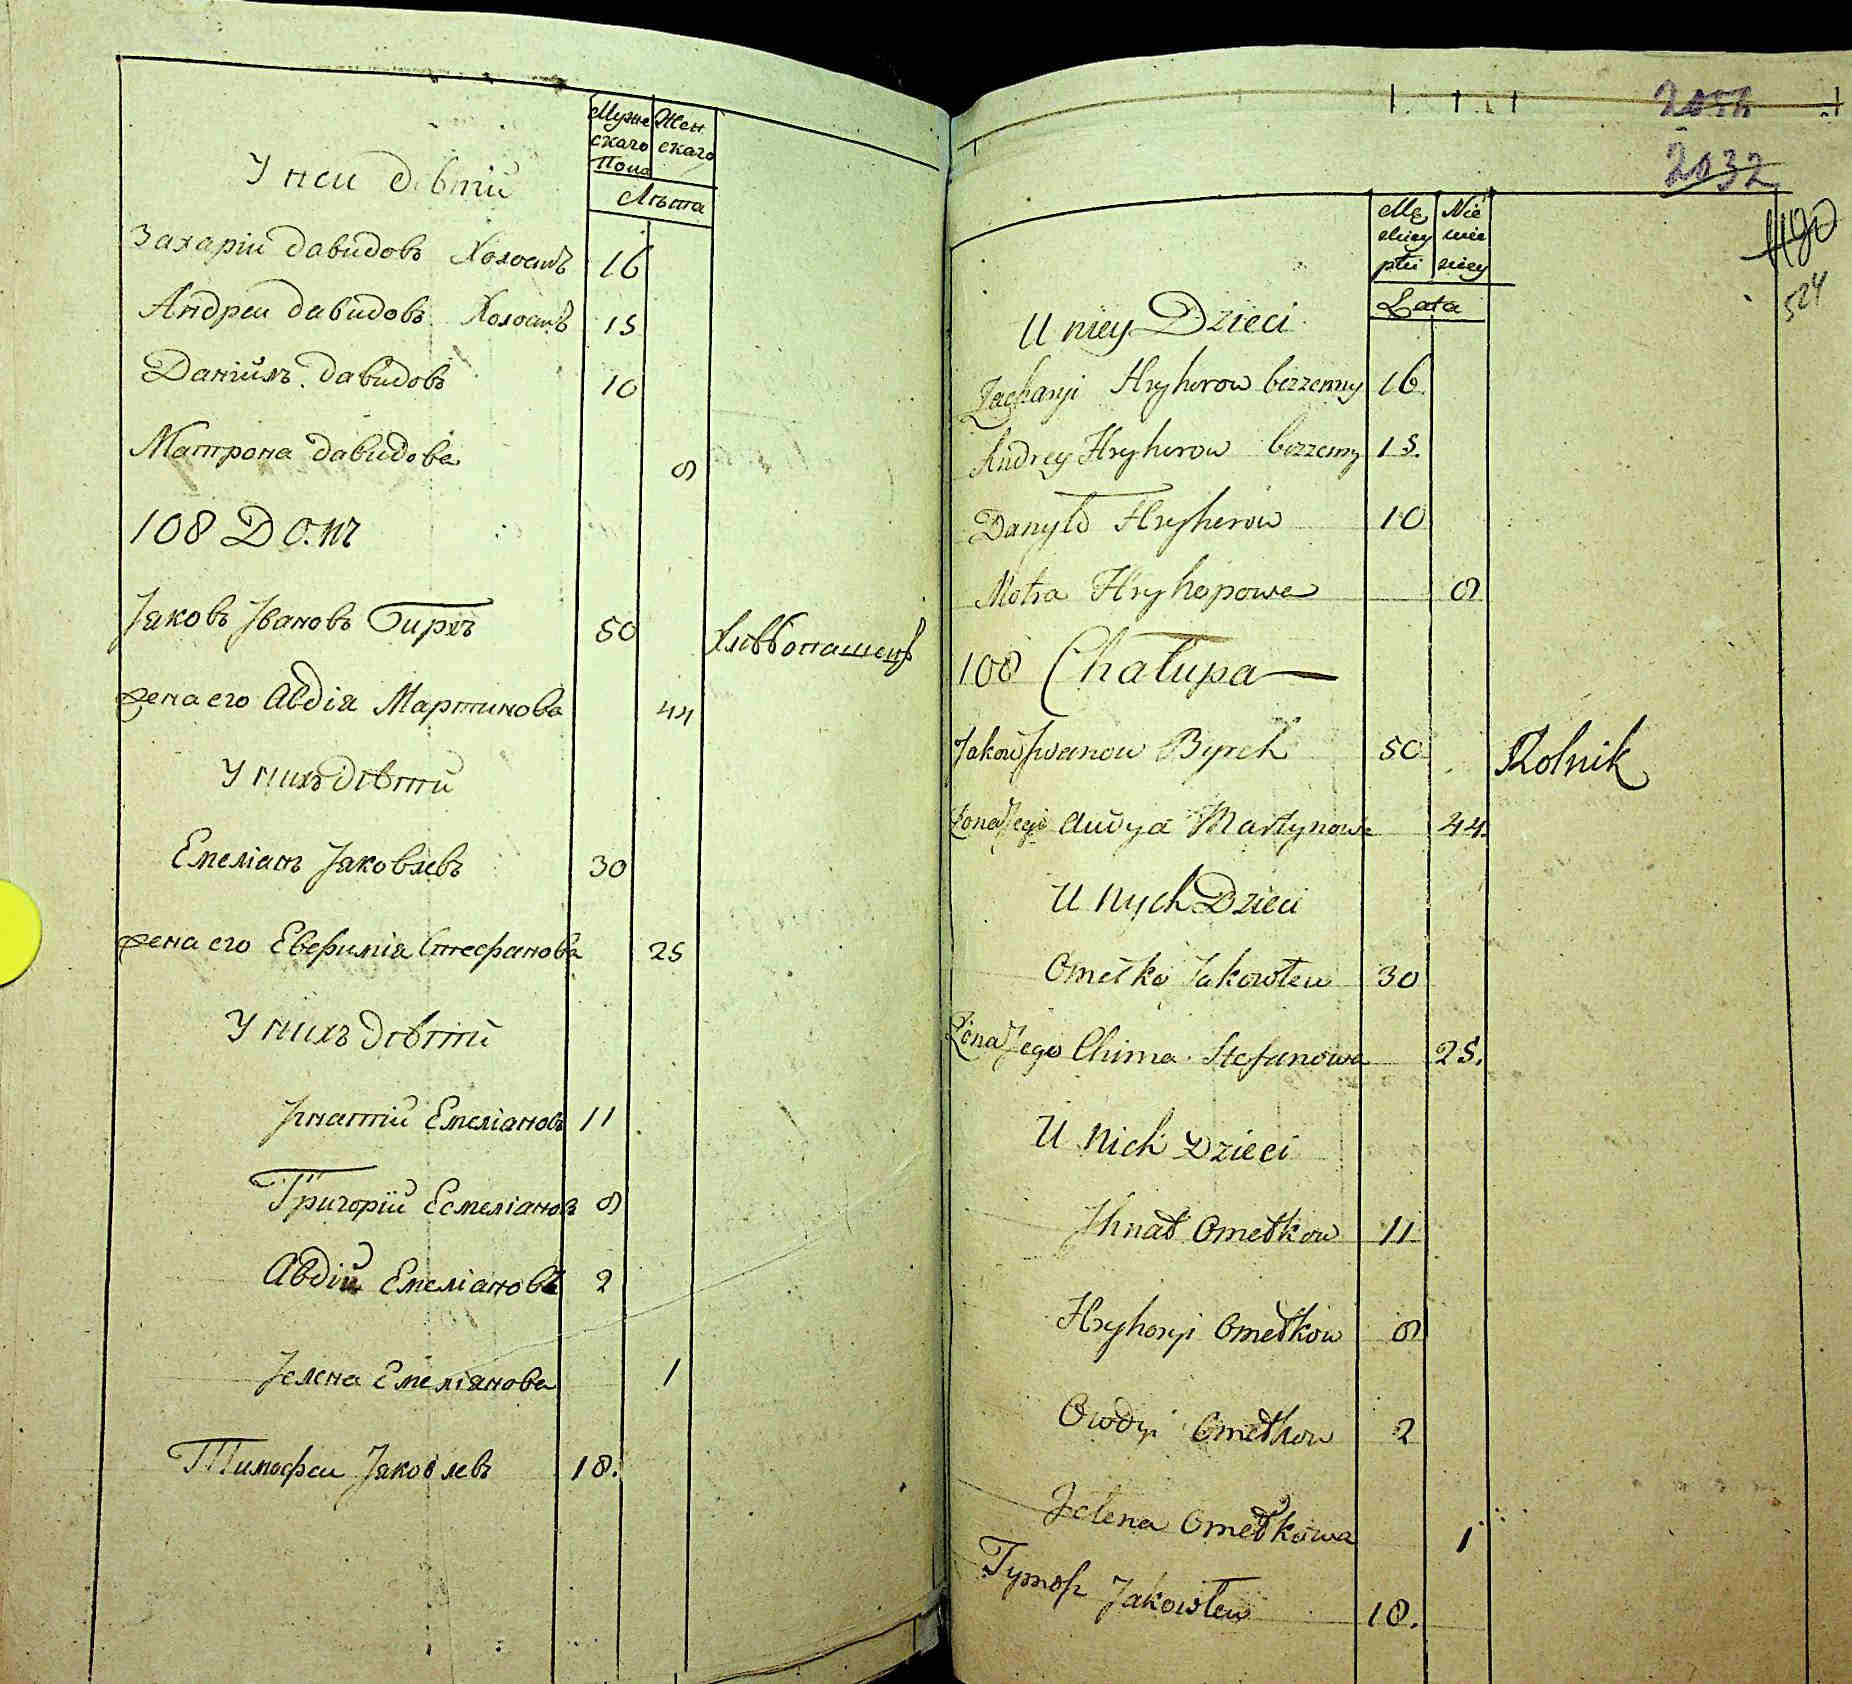 Муже Жен
скаго скаго
Пола
Лѣта
У неи дѣтїи
Захарїи Давидовъ Холостъ 16
Андреи Давидовъ Холостъ 15
Данїилъ Давидовъ 10
Матрона Давидова 8
108 Домъ
Jаковъ Jвановъ Бирхъ 50 Хлѣбопашецъ
жена его Авдїя Мартинова 44
У нихъ дѣтїи
Емелїанъ Jаковлевъ 30
жена его Евфимїя Стефанова 25
У нихъ дѣтїи
Jгнатїи Емелїановъ 11
Григорїй Есмелїановъ 8
Авдїй Емелїановъ 2
Jелена Емелїанова 1
Тимофеи Jаковлевъ 18.
2032
1190
524
Lata
U niey Dzieci
Zacharyi Hryhorow bezzenny 16
Andrey Hryhorow bezzenny 15.
Danyło Hryherow 10
Motra Hryhopowa 8
108 Chałupa
Jakow Jwanow Byrch 50 Rolnik
Zona Jego Audya Martynowa 44.
U Nych Dzieci
Omełko Jakowlew 30
Zona Jego Chima Stefanowa 25.
U Nich Dzieci
Jhnat Omełkow 11
Hryhoryi Omełkow 8
Owdyi Omełkow 2
Jelena Omełkowa 1
Tymofi Jakowlew 18.